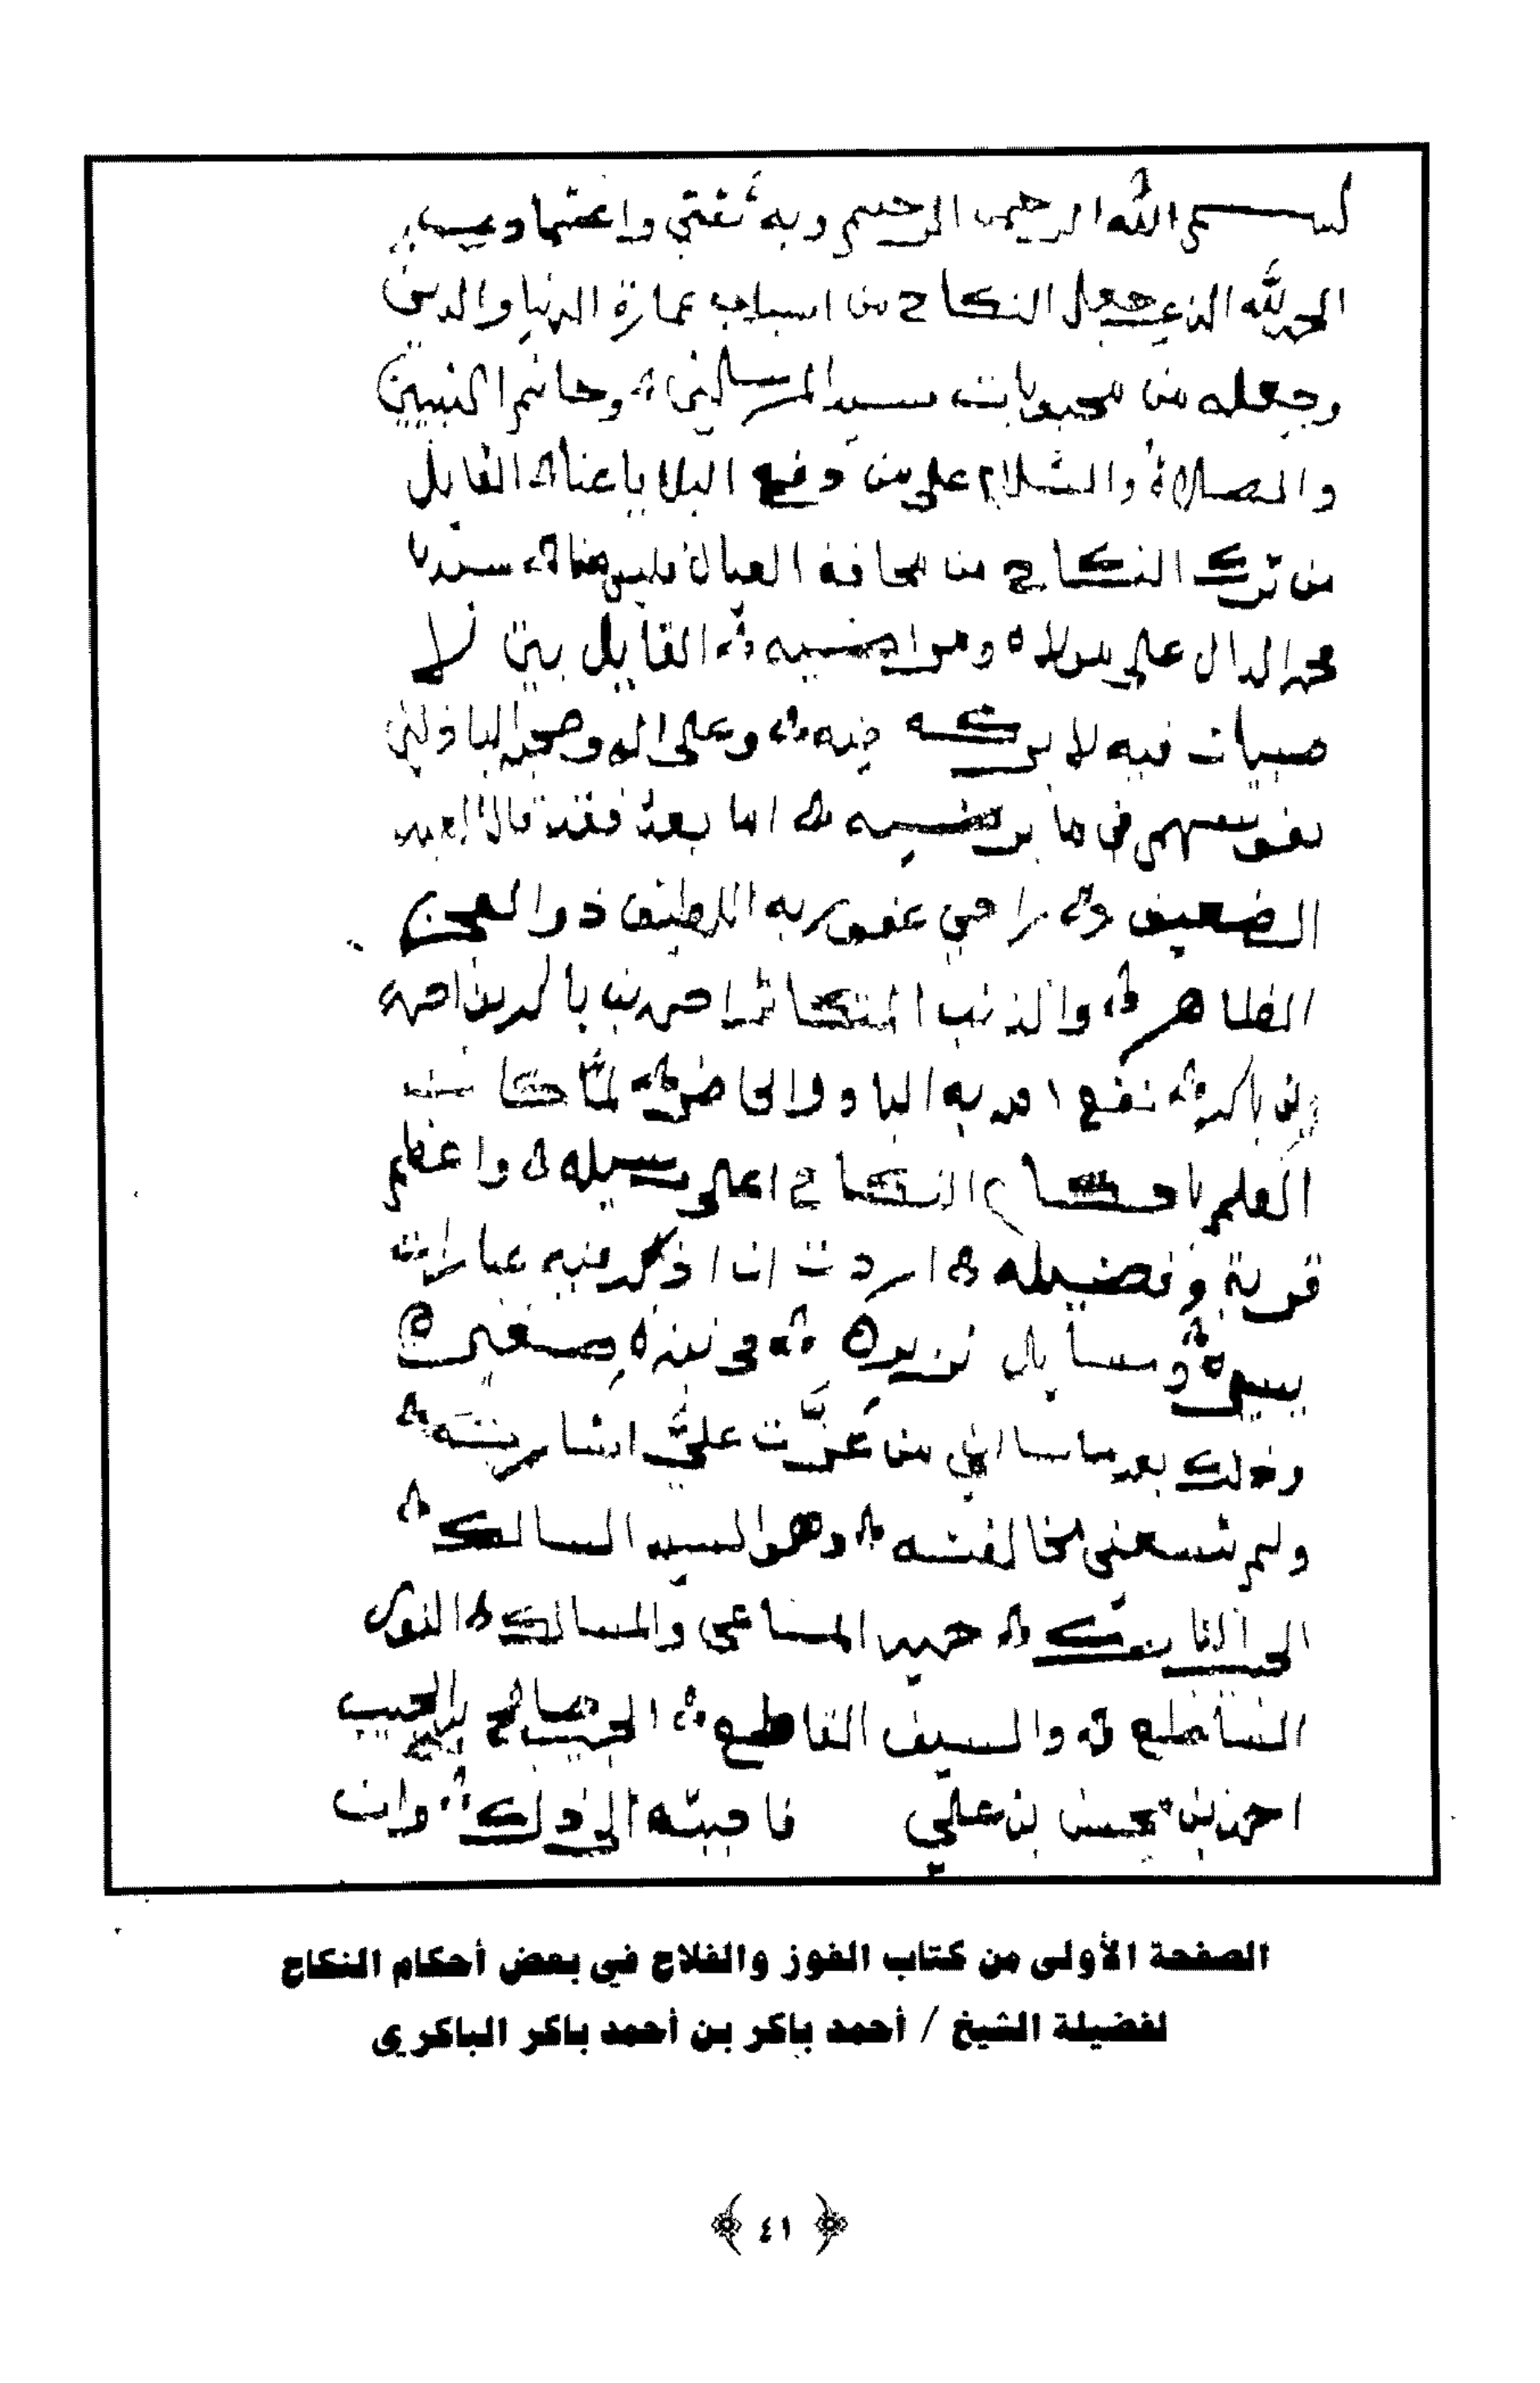 بسم الله الرحمن الرحيم وبه ثقتي واعتمادي
الحمد لله الذي جعل النكاح من اسباب عمارة الدنيا والدين
وجعله من محبوبات سيد المرسلين وخاتم النبيين
والصلاة والسلام على من دفع البلايا عنا القايل
من ترك النكاح من مخافة العيال فليس منا سيدنا
محمد الدال على مولاه ومراضيه القايل بيت لا
صبيان فيه لا بركه فيه وعلى اله وصحبه الباذلين
نفوسهم في ما يرضيه اما بعد فقد قال العبد
الضعيف راجي عفو ربه اللطيف ذو العجز
الظاهر والذنب المتكاثر احمد بن باكر بن احمد
بن باكر نفع الله به الباد والحاضر لما كانت
العلم باحكام النكاح اعلى وسيله واعظم
قربة وفضيله اردت ان اذكر فيه عبارات
يسيرة ومسايل نزيره في نبذة صغيره
وذلك بعد ما سالني من عزت علي اشارته
ولم تسعني مخالفته وهو السيد السالك
الى الناسك حميد المساعي والمسالك النور
الساطع والسيف القاطع الحبيب صالح بن الحبيب
احمد بن محسن بن علي فاجبته الى ذلك وان
الصفحة الأولى من كتاب الفوز والفلاح في بعض أحكام النكاح
لفضيلة الشيخ / أحمد باكر بن أحمد باكر الباكري
﴿ ٤١ ﴾